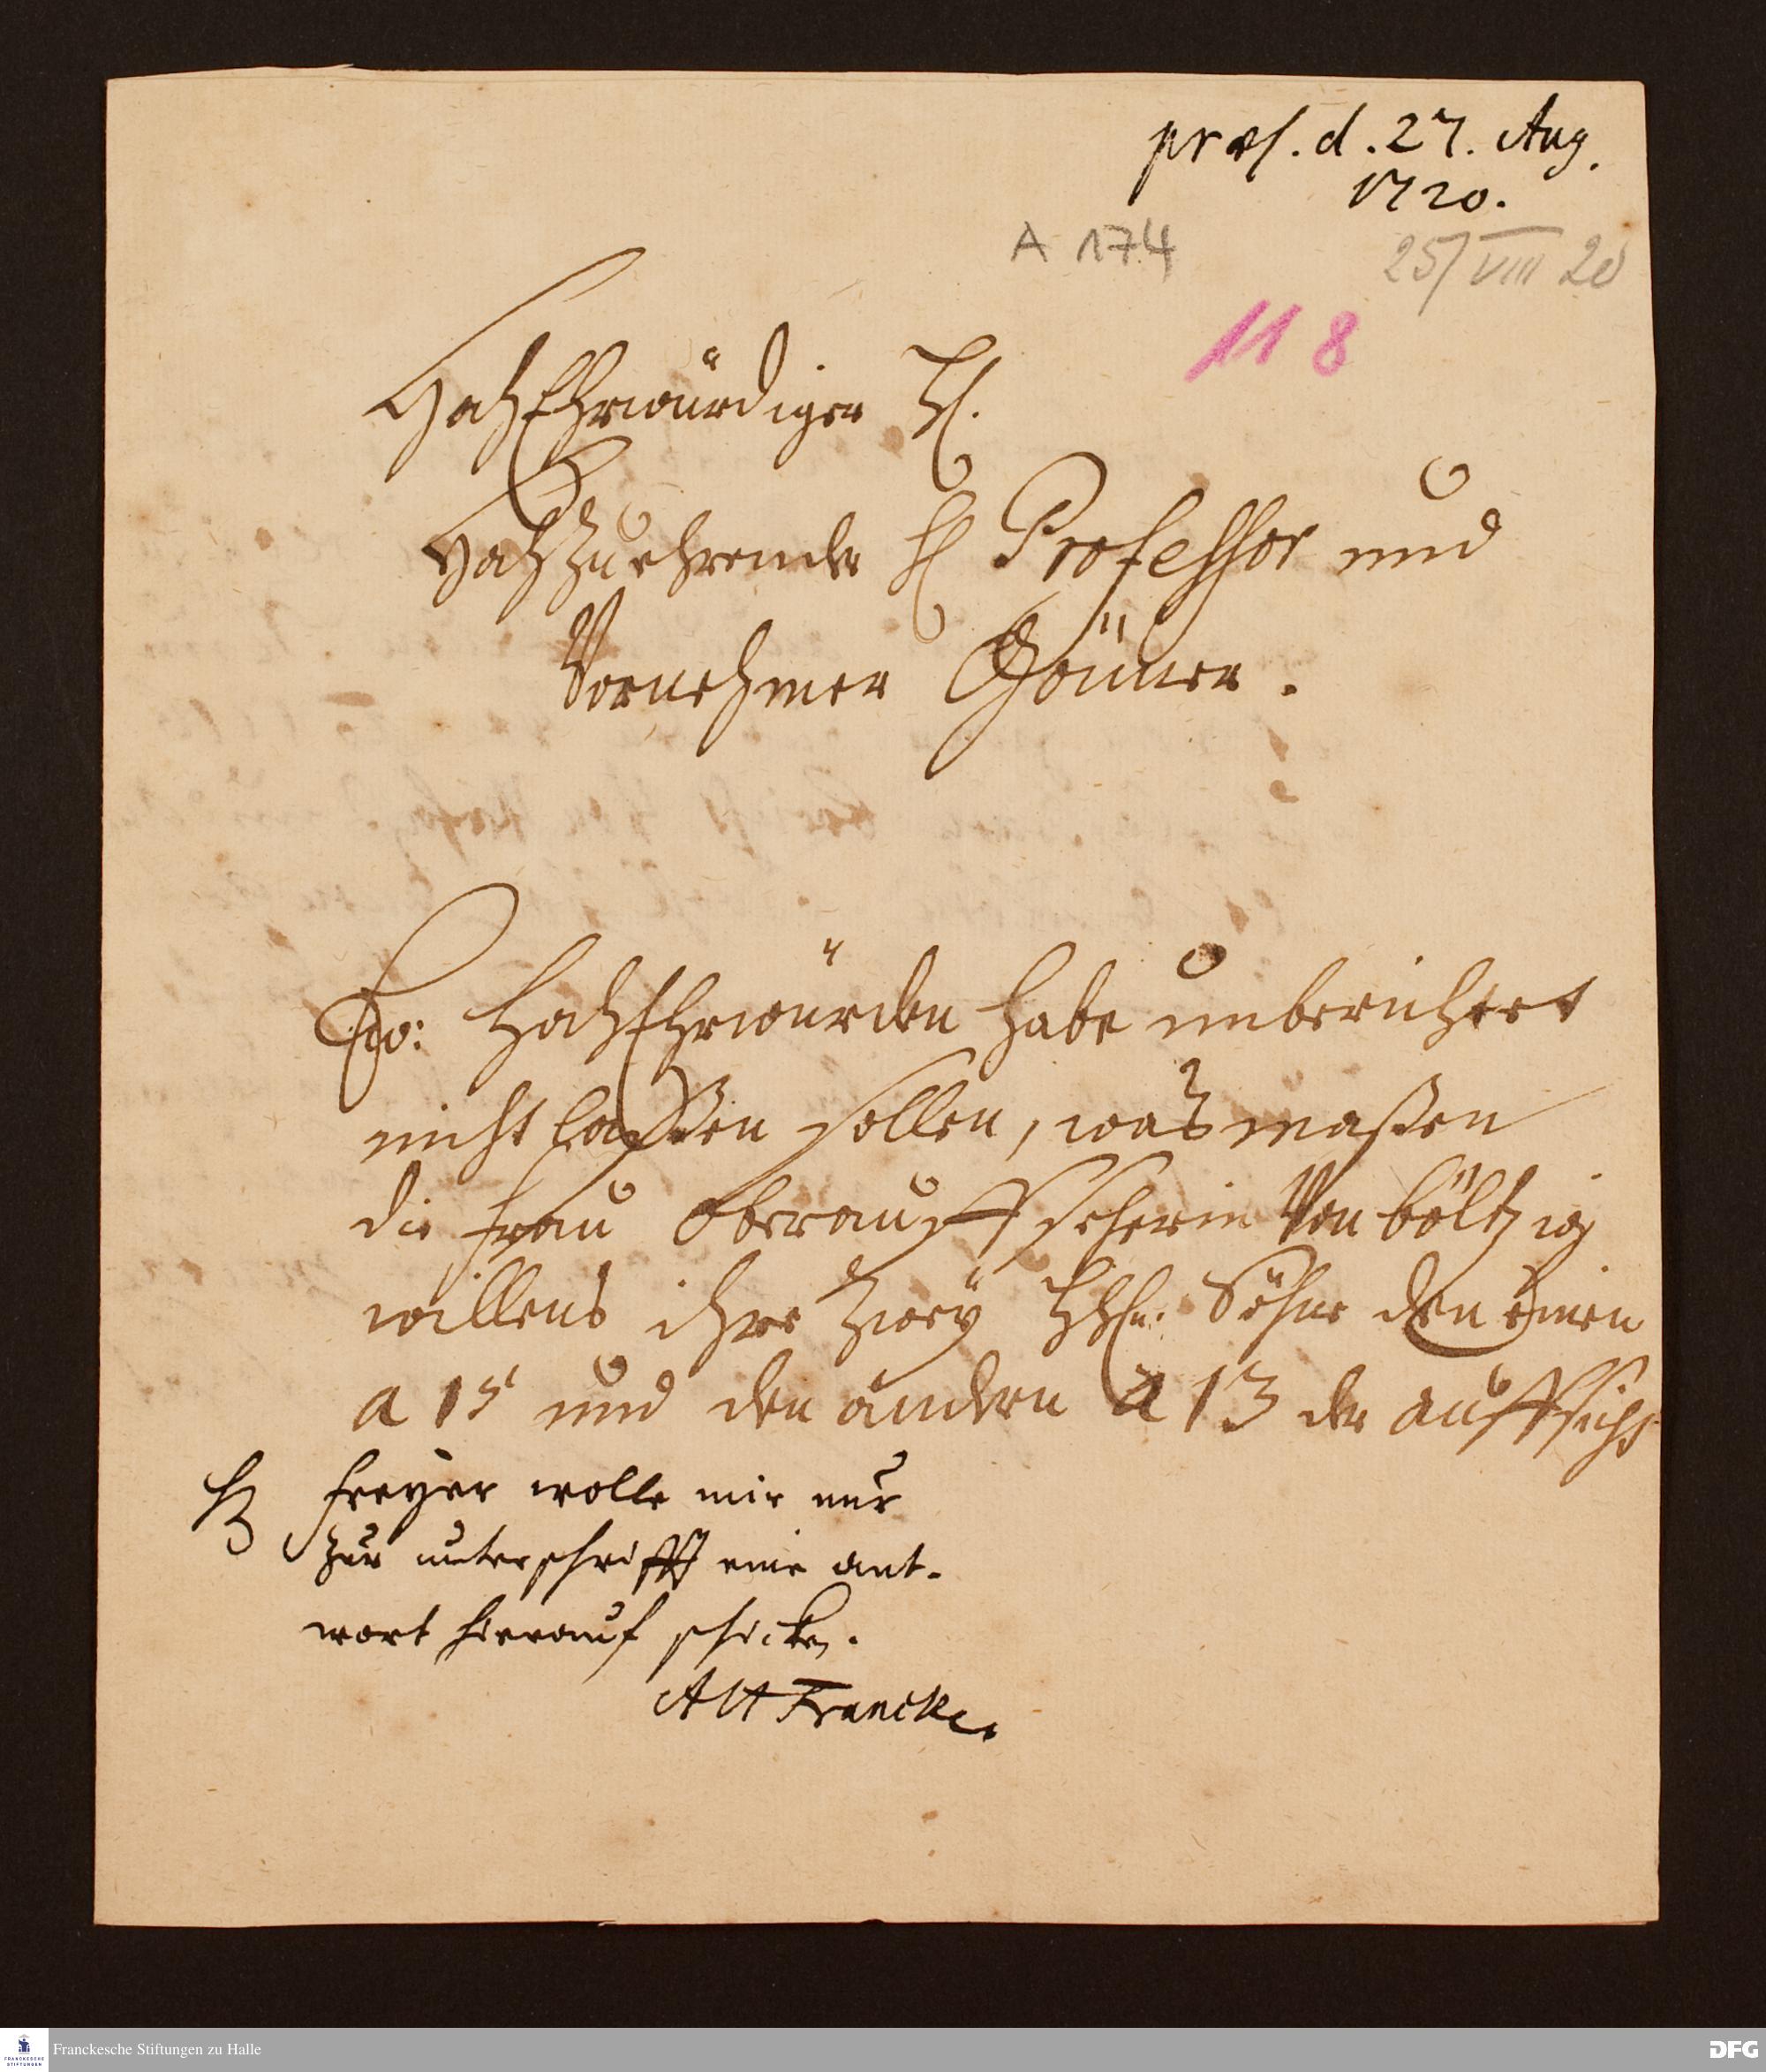 præs. d. 27. Aug.
1720.
A 174
25/VIII 20
118
HochEhrwürdiger H.
Hochzuehrender H Professor und
Vornehmer Gönner.
Ew: HochEhrwürden habe unberichtet
nicht laßen sollen, was maßen
die Frau Oberauffseherin Von Böltzig
willens ihre zwey Söhne den einen
a 15 und den andern a 13 der auffsicht
H Freyer wolle mir nur
zur unterschrifft eine ant-
wort hierauf schicken.
AHFrancke.
Franckesche Stiftungen zu Halle
FRANCKESCHE
STIFTUNGEN
DFG